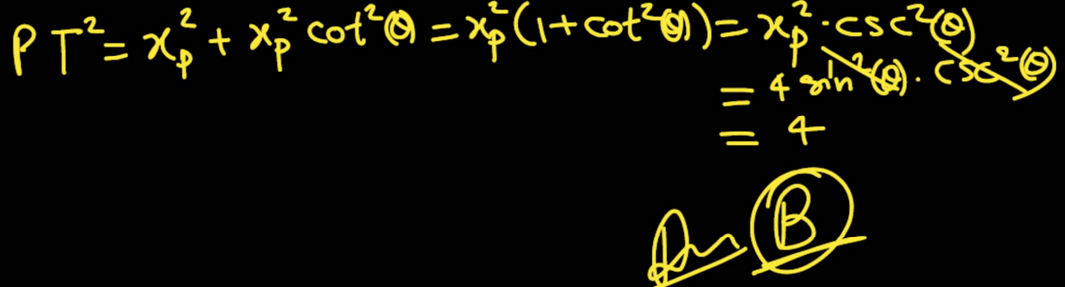 PT² = xₚ² + xₚ² cot²θ = xₚ²(1+cot²θ) = xₚ²·csc²(θ)
= 4 sin²(θ). csc²(θ)
= 4
Ans B